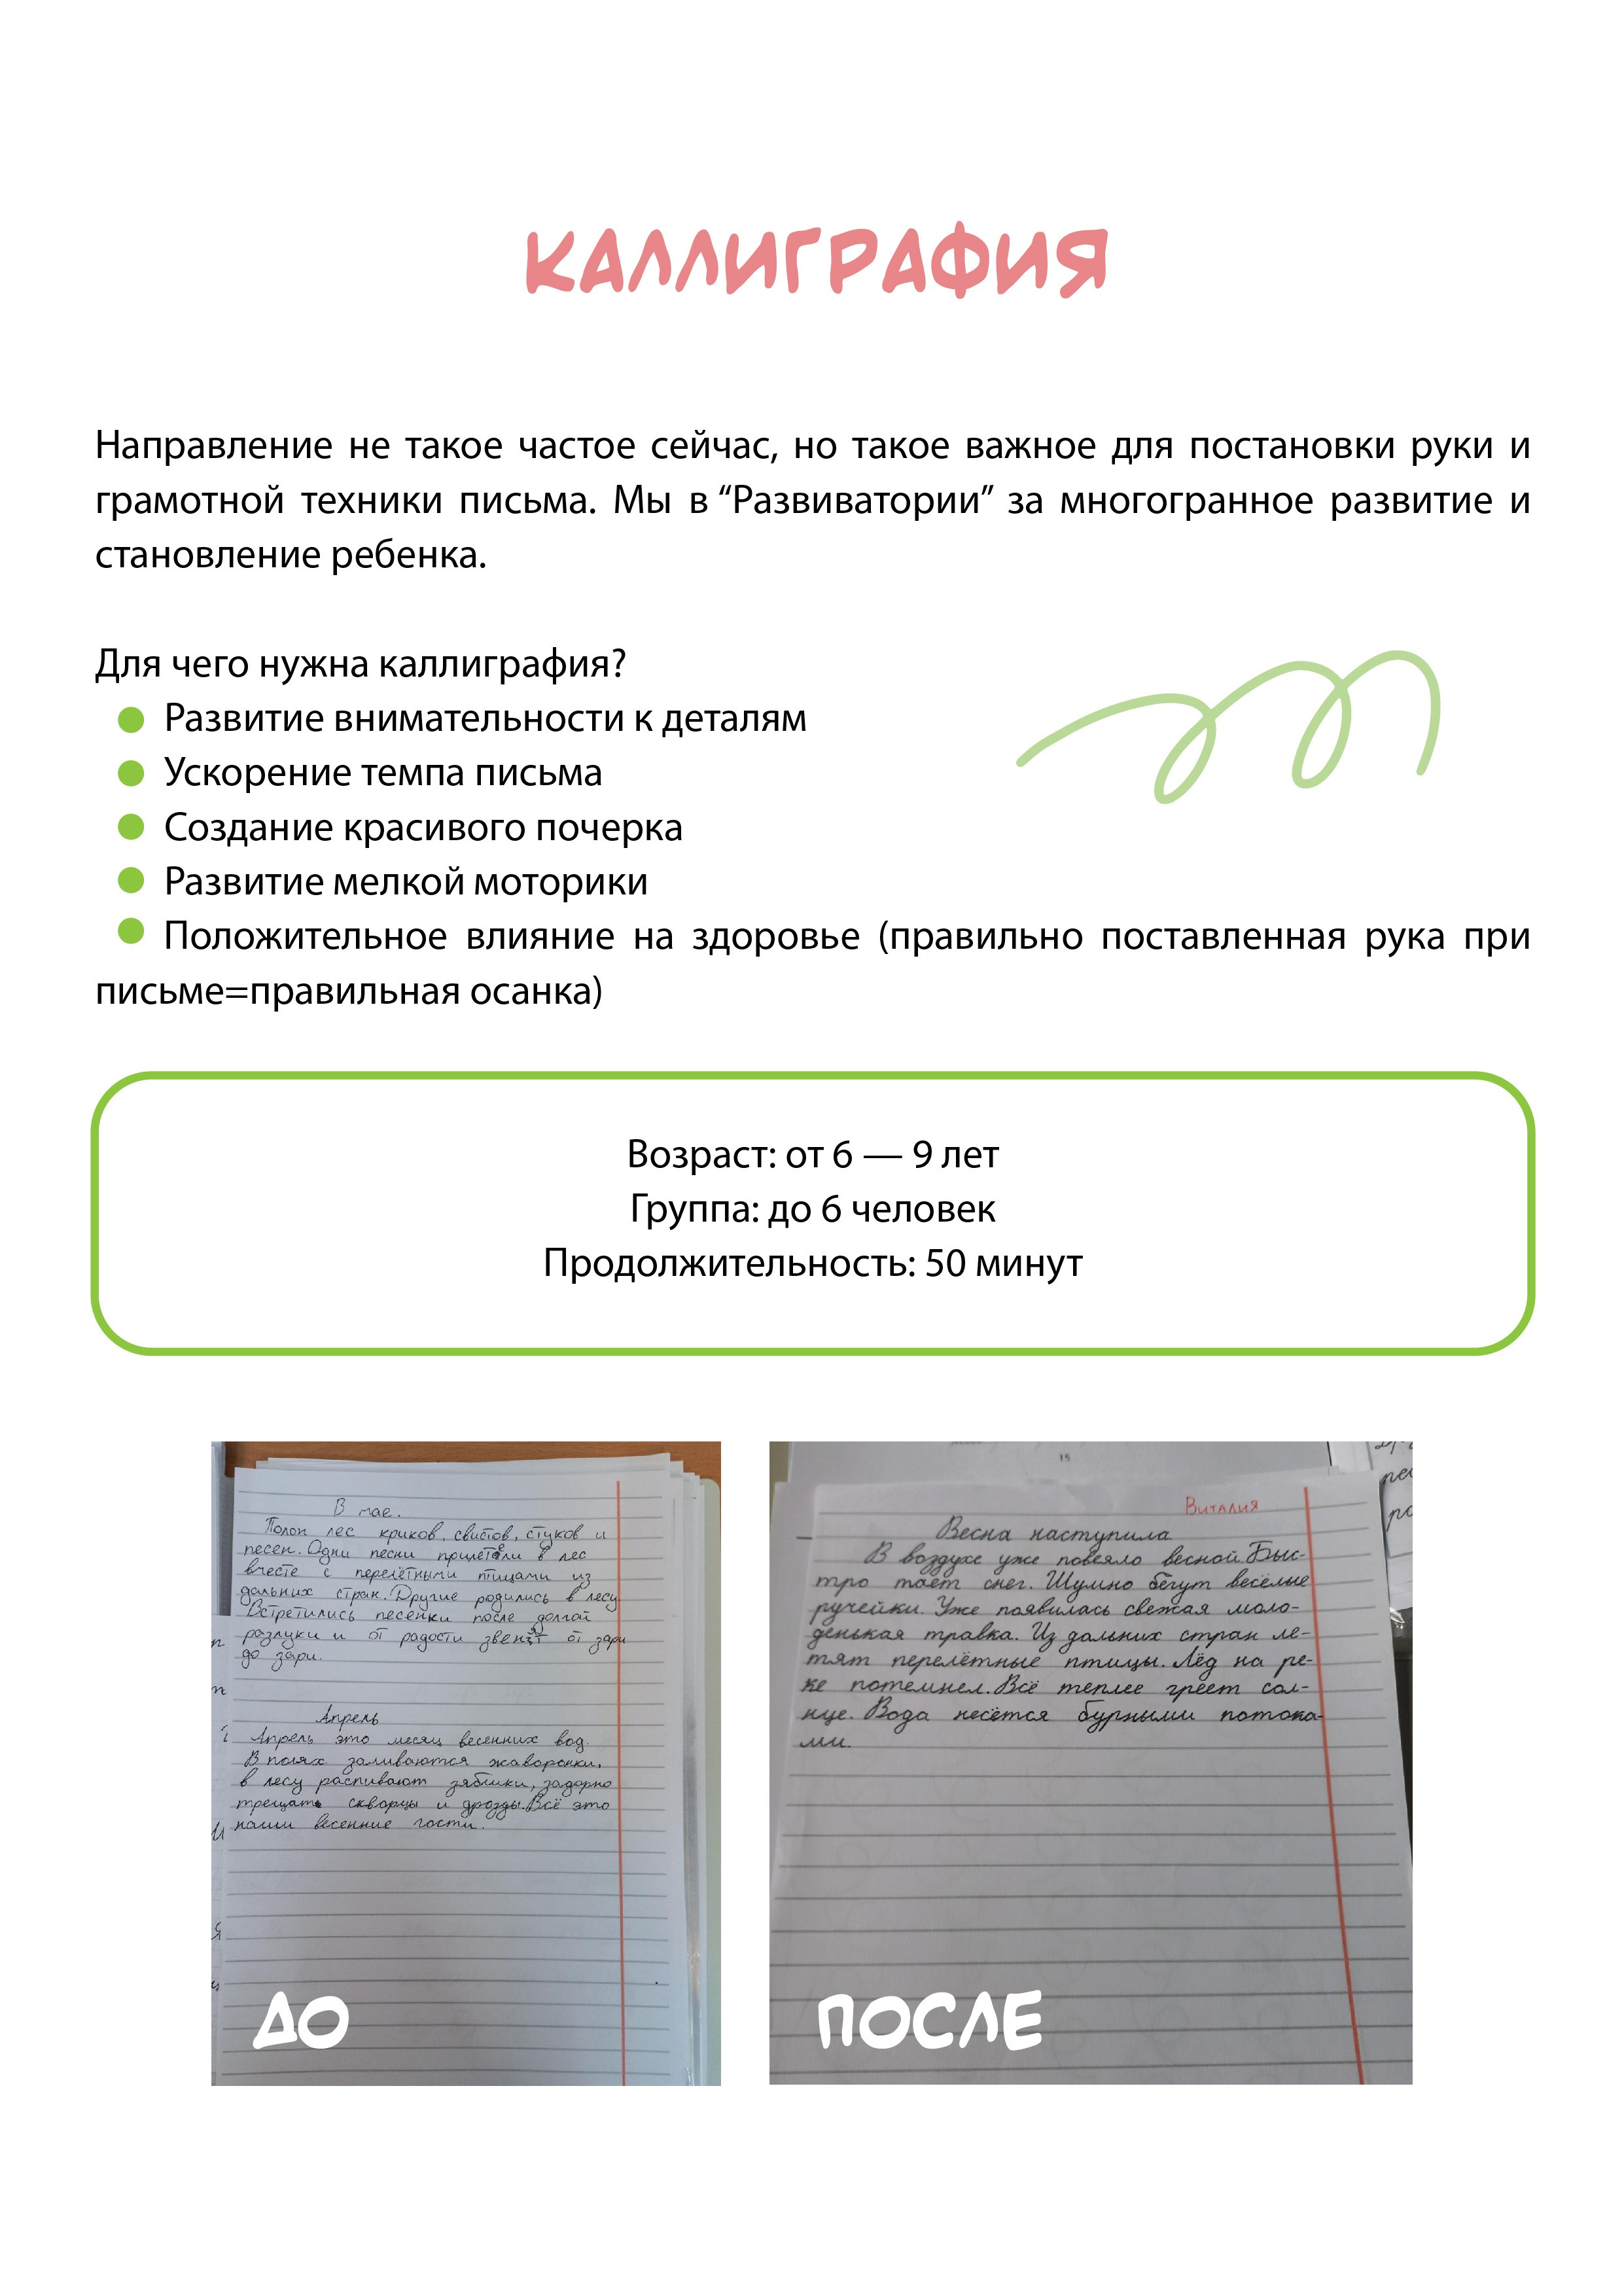 КАЛЛИГРАФИЯ
Направление не такое частое сейчас, но такое важное для постановки руки и
грамотной техники письма. Мы в “Развиватории” за многогранное развитие и
становление ребенка.
Для чего нужна каллиграфия?
Развитие внимательности к деталям
Ускорение темпа письма
Создание красивого почерка
Развитие мелкой моторики
Положительное влияние на здоровье (правильно поставленная рука при
письме=правильная осанка)
Возраст: от 6 — 9 лет
Группа: до 6 человек
Продолжительность: 50 минут
В мае.
Полон лес криков, свистов, стуков и
песен. Одни песни прилетели в лес
вместе с перелётными птицами из
дальних стран. Другие родились в лесу
Встретились песенки после долгой
разлуки и от радости звенят от зари
до зари.
Апрель
Апрель это месяц весенних вод.
В полях заливаются жаворонки,
в лесу распивают зяблики, задорно
трещать скворцы и дрозды. Всё это
наши весенние гости.
ДО
15
Виталия
Весна наступила
В воздухе уже повеяло весной. Быс-
тро тает снег. Шумно бегут весёлые
ручейки. Уже появилась свежая моло-
денькая травка. Из дальних стран ле-
тят перелётные птицы. Лёд на ре-
ке потемнел. Всё теплее греет сол-
нце. Вода несётся бурными потока-
ми.
ПОСЛЕ